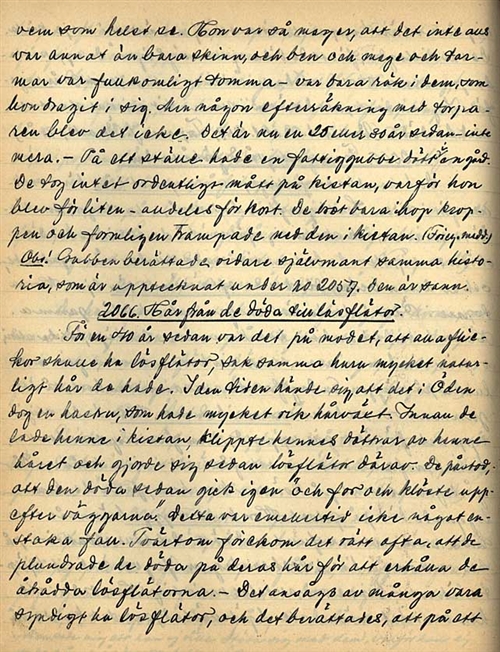 vem som helst se. Hon var så mager, att det inte aus
var annat än bara skinn, och ben och mage och tar-
mar var fullkomligt tomma – var bara rök i dem, som
hon dragit i sig. Men någon efterräkning med torpa-
ren blev det icke. Det är nu en 25 eller 30 år sedan – inte
mera. – På ett ställe hade en fattiggubbe dött å en gård.
De tog intet ordentligt mått på kistan, varför hon
blev för liten – alldeles för kort. De bröt bara ihop krop-
pen och formligen trampade ned den i kistan. (Föreg. medd.)
Obs! Gubben berättade vidare självmant samma histo-
ria, som är upptecknat under no 2057. Den är sann.
2066. Hår från de döda till lösflätor.
För en 40 år sedan var det på modet, att alla flic-
kor skulle ha lösflätor, sak samma huru mycket natur-
ligt hår de hade. I den tiden hände sig att det i Oden
dog en hustru, som hade mycket rik hårväxt. Innan de
lade henne i kistan, klippte hennes döttrar av henne
håret och gjorde sig sedan lösflätor därav. De påstod,
att den döda sedan gick igen "och for och klöste upp-
efter väggarna". Detta var emellertid icke något en-
staka fall. Tvärtom förekom det rätt ofta, att de
plundrade de döda på deras hår för att erhålla de
åtrådda lösflätorna. – Det ansågs av många vara
syndigt ha lösflätor, och det berättades, att på ett